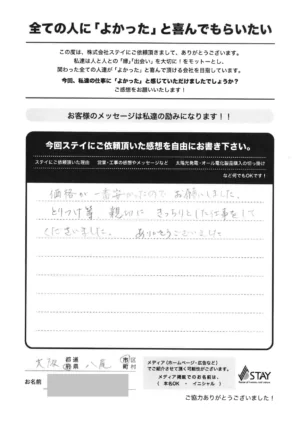 全ての人に「よかった」と喜んでもらいたい
この度は、株式会社ステイにご依頼頂きまして、ありがとうございます。
私達は人と人との「縁」「出会い」を大切に！をモットーとし、
関わった全ての人達が「よかった」と喜んで頂ける会社を目指しています。
今回、私達の仕事に「よかった」と感じていただけましたでしょうか？
ご感想をお願いいたします！
お客様のメッセージは私達の励みになります！！
今回ステイにご依頼頂いた感想を自由にお書き下さい。
ステイにご依頼頂いた理由 営業・工事の感想やメッセージなど 太陽光発電・オール電化製品購入の切っ掛け
など何でもOKです！
価格が一番安かったのでお願いしました。
とりつけ等、親切に きっちりとした仕事をして
くださいました。 ありがとうございました。
大阪 都道府県 八尾 市区町村
お名前
メディア（ホームページ・広告など）
でご紹介させて頂く可能性がございます。
メディア掲載でのお名前は、
（ 本名OK ・ イニシャル ）
STAY
ご協力ありがとうございました！